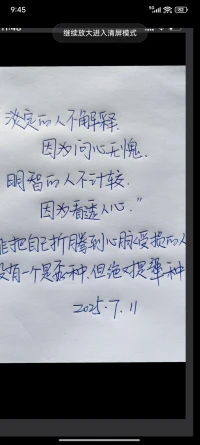 9:45
继续放大进入清屏模式
淡定的人不解释.
因为问心无愧.
明智的人不计较.
因为看透人心."
把自己折腾到心脉受损的人
没有一个是孬种.但绝对是犟种
2025.7.11